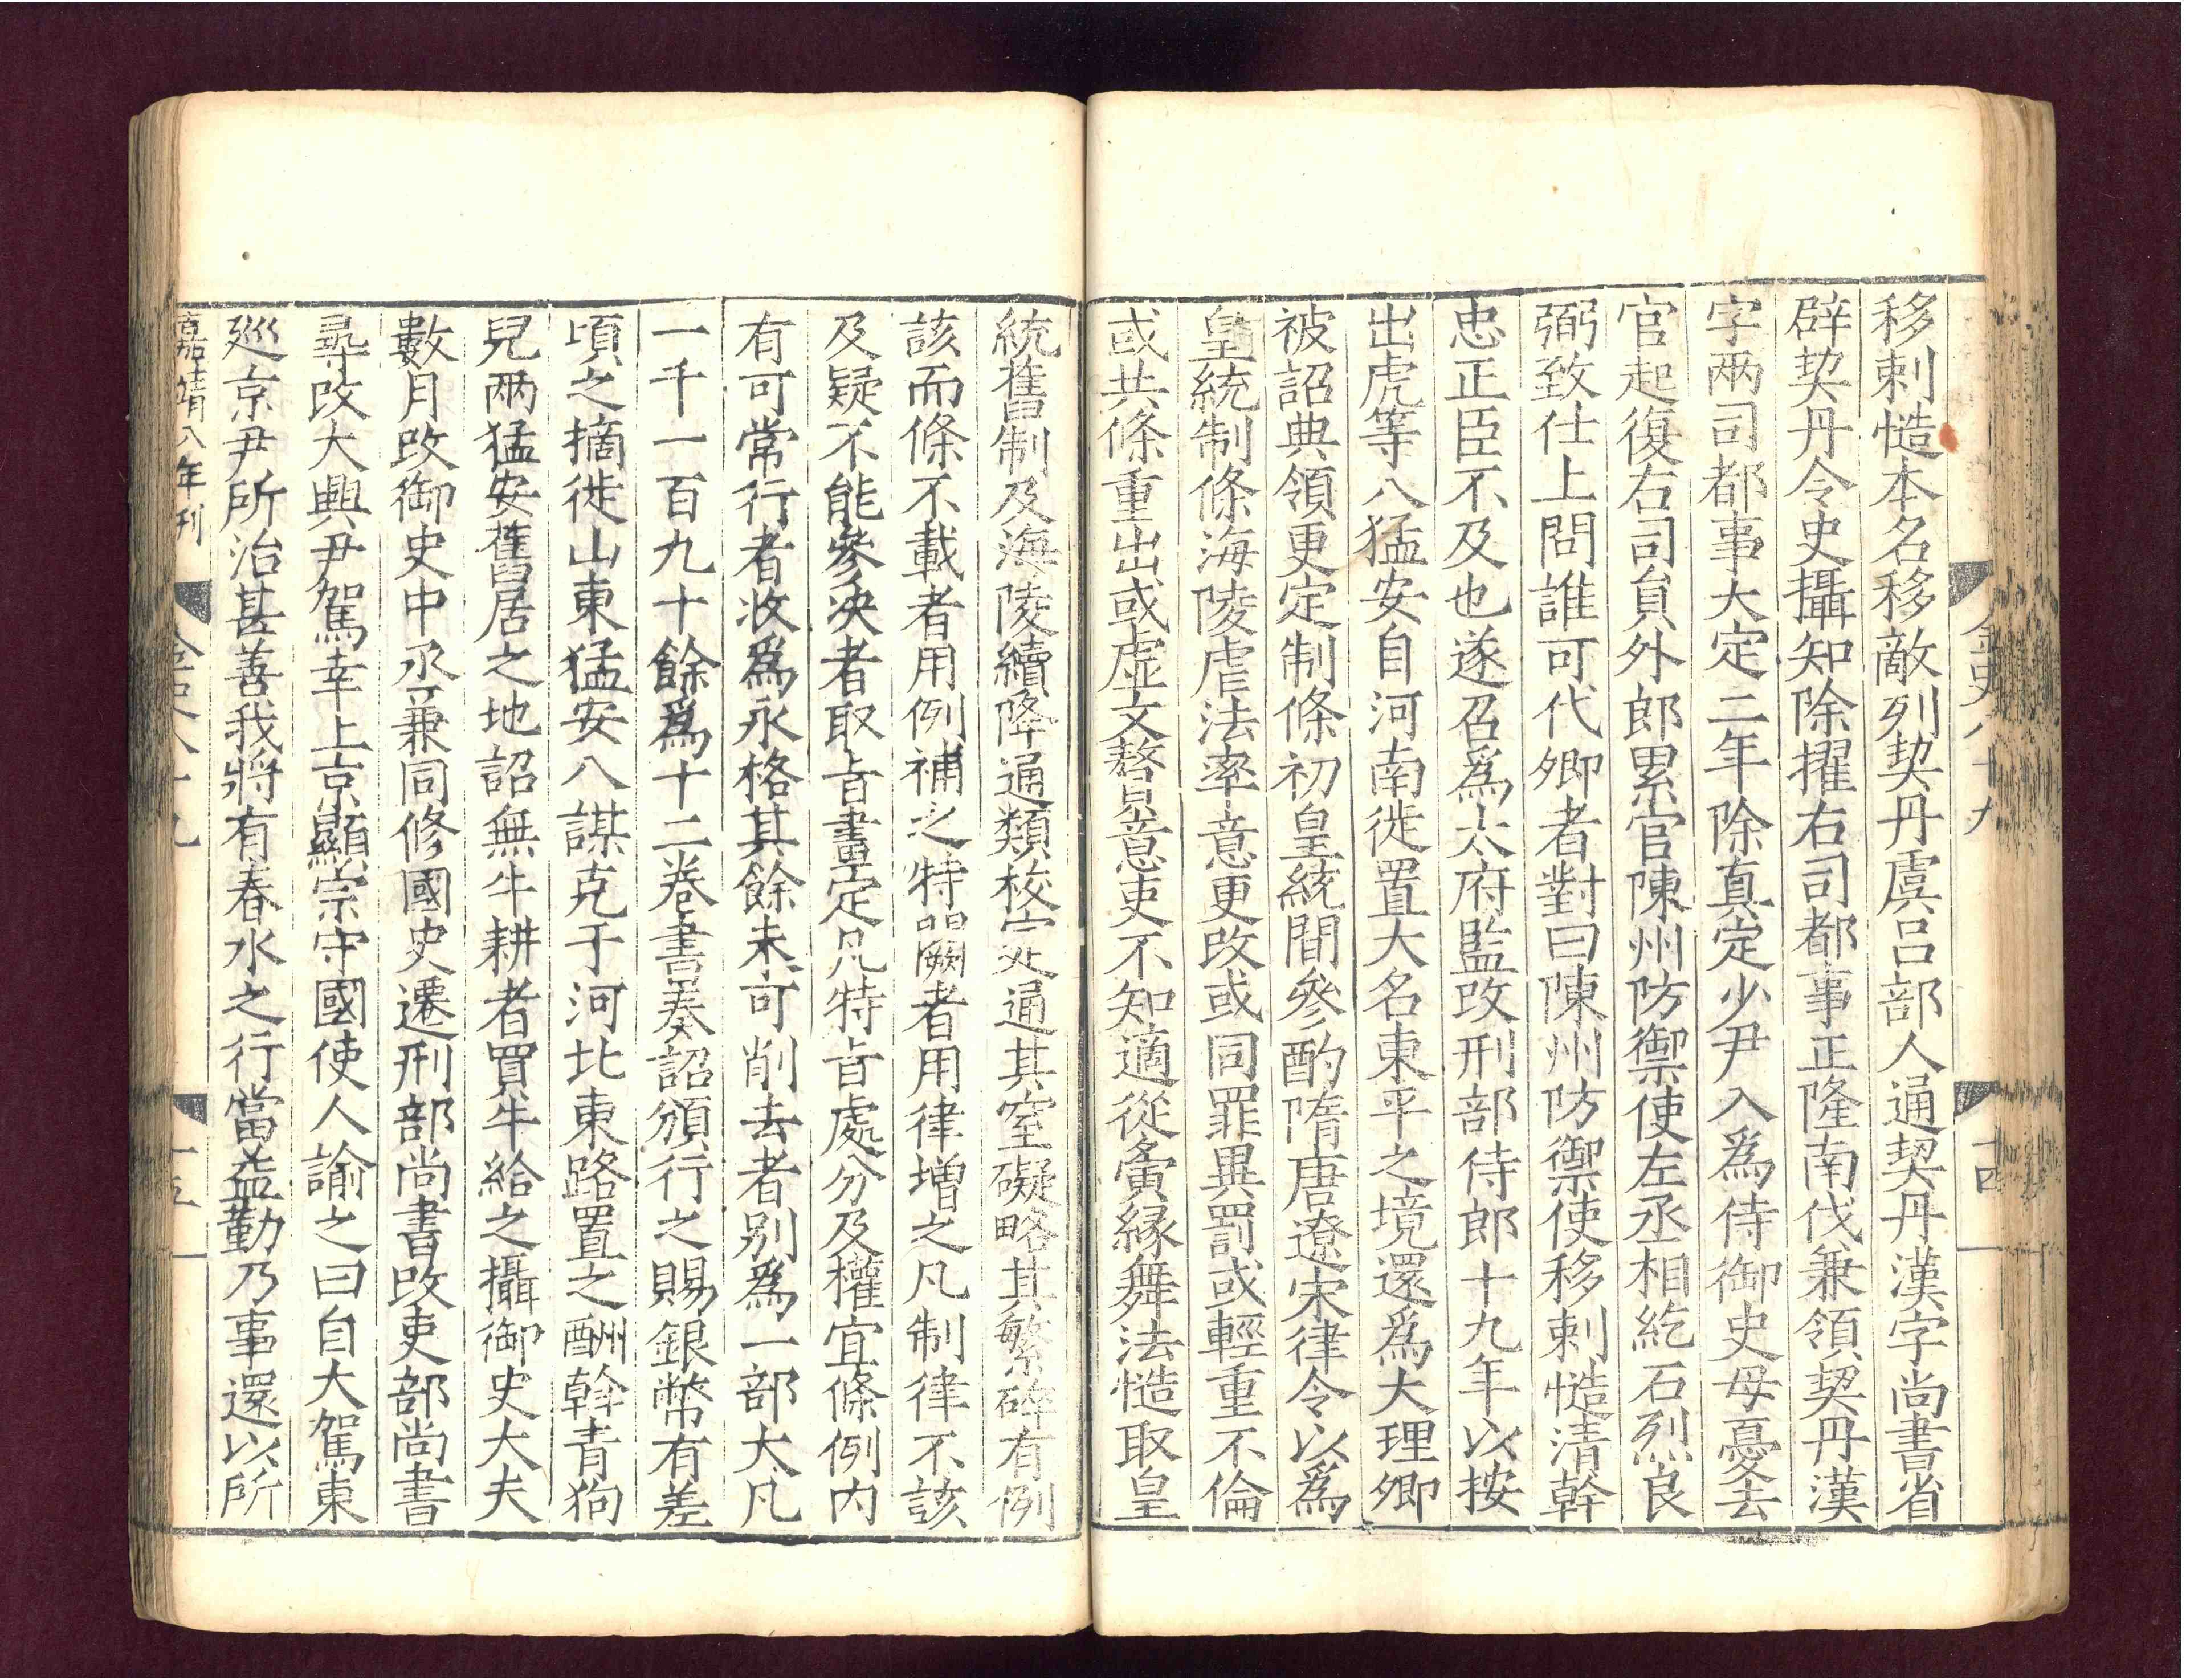 金史八十九
十四
移剌慥本名移敵列契丹虞呂部人通契丹漢字尚書省
辟契丹令史攝知除擢右司都事正隆南伐兼領契丹漢
字兩司都事大定二年除真定少尹入爲侍御史母憂去
官起復右司員外郎累官陳州防禦使左丞相紇石烈良
弼致仕上問誰可代卿者對曰陳州防禦使移剌慥清幹
忠正臣不及也遂召爲太府監改刑部侍郎十九年以按
出虎等八猛安自河南徙置大名東平之境還爲大理卿
被詔典領更定制條初皇統間參酌隋唐遼宋律令以爲
皇統制條海陵虐法率意更改或同罪異罰或輕重不倫
或共條重出或虛文贅意吏不知適從夤緣舞法慥取皇
統舊制及海陵續降通類校定通其窒礙略其繁碎有例
該而條不載者用例補之特闕者用律增之凡制律不該
及疑不能參決者取旨畫定凡特旨處分及權宜條例內
有可常行者收爲永格其餘未可削去者別爲一部大凡
一千一百九十餘爲十二卷書奏詔頒行之賜銀幣有差
頃之摘徙山東猛安八謀克于河北東路置之酬斡青狗
兒兩猛安舊居之地詔無牛耕者買牛給之攝御史大夫
數月改御史中丞兼同修國史遷刑部尚書改吏部尚書
尋改大興尹駕幸上京顯宗守國使人諭之曰自大駕東
巡京尹所治甚善我將有春水之行當益勤乃事還以所
嘉靖八年刊
金史八十九
十五